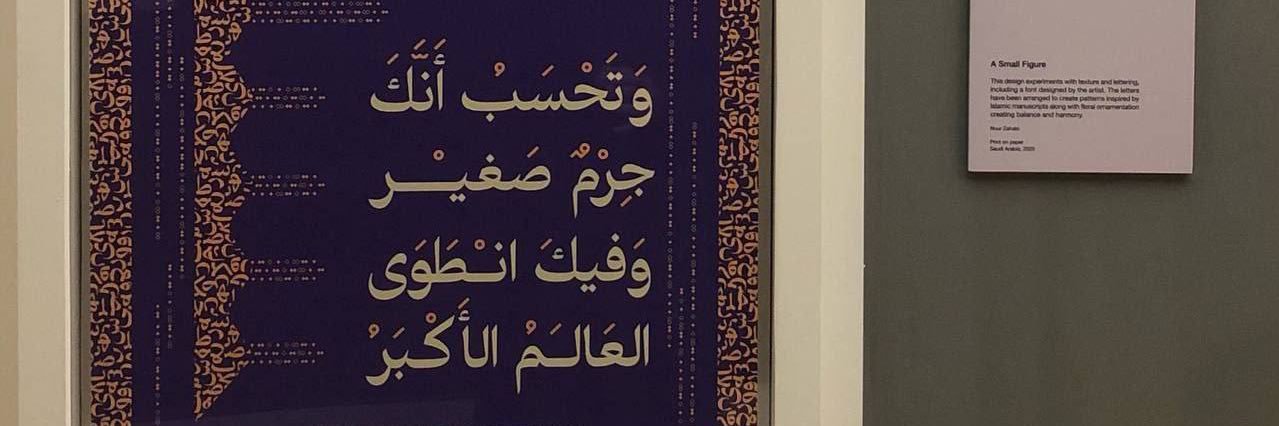 وَتَحْسَبُ أَنَّكَ
جِرْمٌ صَغيـْـر
وَفيكَ انـْـطَوَى
العَالـَـمُ الأَكْـبَرُ
A Small Figure
This design experiments with texture and lettering,
including a font designed by the artist. The letters
have been arranged to create patterns inspired by
Islamic manuscripts along with floral ornamentation
creating balance and harmony.
Nour Zahabi
Print on paper
Saudi Arabia, 2020